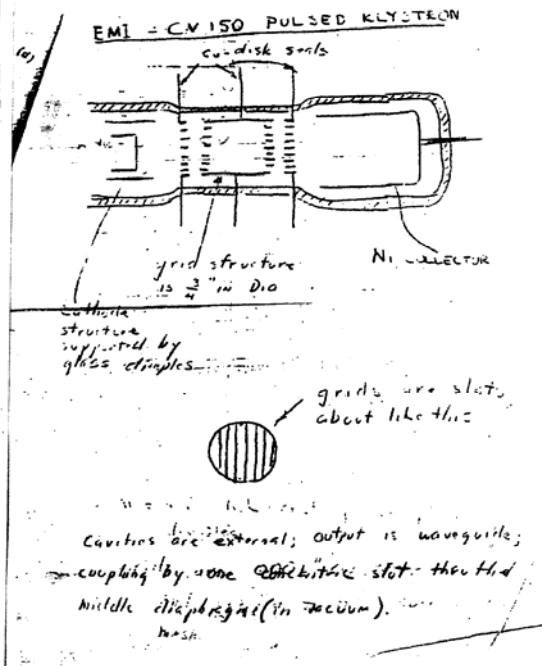 EMI - CV 150 PULSED KLYSTRON
(a)
cu-disk seals
grid structure
is 3/4" in DIA
Ni COLLECTOR
cathode
structure
supported by
glass dimples
grids are slats
about like this
Cavities are external; output is waveguide;
coupling by one slot thru the
middle diaphragm (in vacuum).